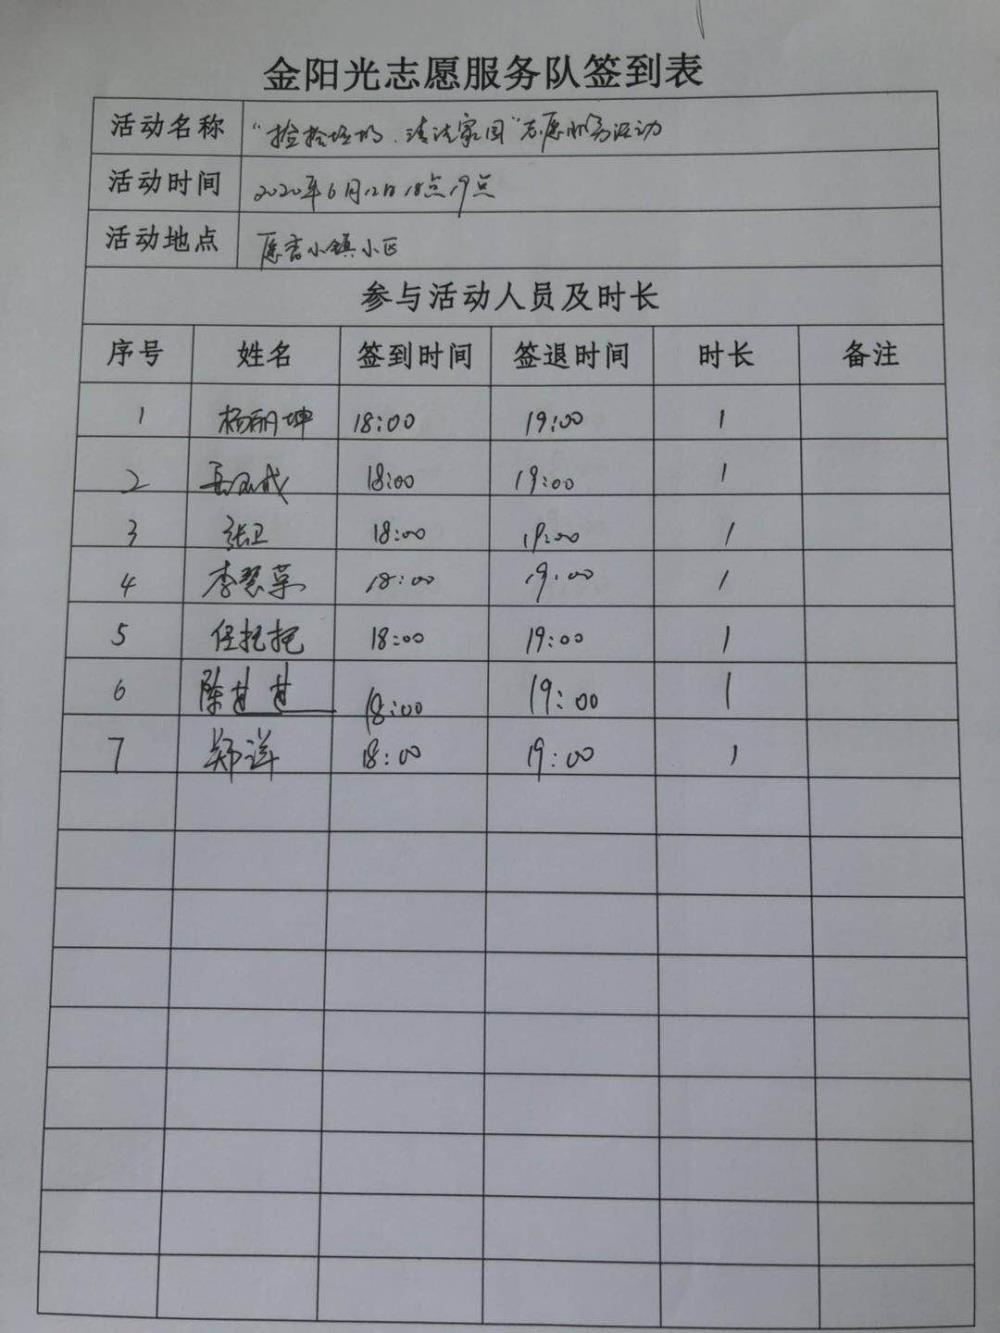 金阳光志愿服务队签到表
活动名称 "捡拾垃圾、清洁家园"志愿服务活动
活动时间 2020年6月12日18点19点
活动地点 小镇小区
参与活动人员及时长
序号 姓名 签到时间 签退时间 时长 备注
1 杨丽坤 18:00 19:00 1
2 18:00 19:00 1
3 张卫 18:00 19:00 1
4 李慧苹 18:00 19:00 1
5 任艳艳 18:00 19:00 1
6 陈甘甘 18:00 19:00 1
7 郑洋 18:00 19:00 1